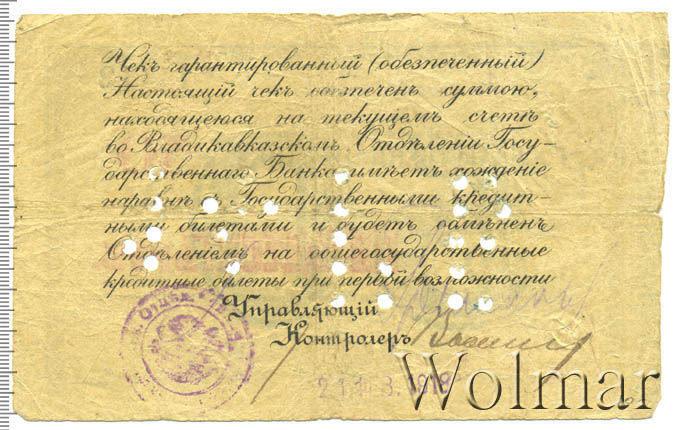 Чекъ гарантированный (обезпеченный)
Настоящій чек обезпечен суммою,
находящеюся на текущемъ счетѣ
во Владикавказскомъ Отдѣленіи Госу-
дарственнаго Банка имѣетъ хожденіе
наравнѣ с Государственными кредит-
ными билетами и будетъ обмѣнен
Отдѣленіемъ на общегосударственные
кредитные билеты при первой возможности
Управляющій
Контролеръ
1918
Wolmar